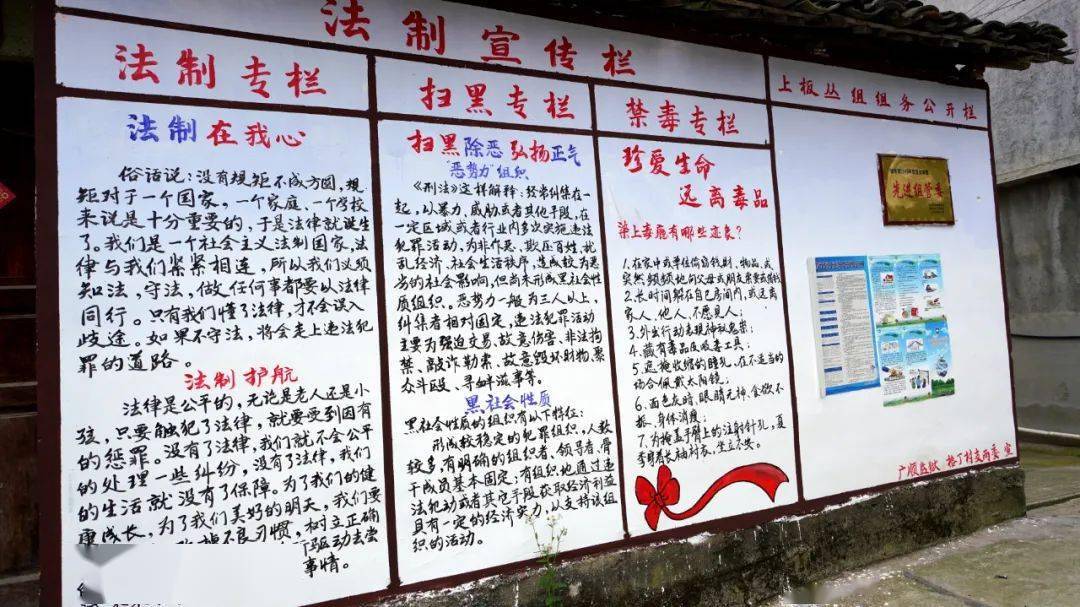 法制宣传栏
法制专栏
法制在我心
俗话说：没有规矩不成方圆，规
矩对于一个国家，一个家庭、一个学校
来说是十分重要的，于是法律就诞生
了。我们是一个社会主义法制国家，法
律与我们紧紧相连，所以我们必须
知法，守法，做任何事都要以法律
同行。只有我们懂了法律，才不会误入
歧途。如果不守法，将会走上违法犯
罪的道路。
法制护航
法律是公平的，无论是老人还是小
孩，只要触犯了法律，就要受到因有
的惩罪。没有了法律，我们就不会公平
的处理一些纠纷，没有了法律，我们
的生活就没有了保障。为了我们的健
康成长，为了我们美好的明天，我们要
掉不良习惯，树立正确
驱动去尝
事情。
扫黑专栏
扫黑除恶弘扬正气
“恶势力”组织
《刑法》这样解释：经常纠集在一
起，以暴力、威胁或者其他手段，在
一定区域或者行业内多次实施违法
犯罪活动，为非作恶，欺压百姓，扰
乱经济、社会生活秩序，造成较为恶
劣的社会影响，但尚未形成黑社会性
质组织，恶势力一般为三人以上，
纠集者相对固定，违法犯罪活动
主要为强迫交易、故意伤害、非法拘
禁、敲诈勒索、故意毁坏财物、聚
众斗殴、寻衅滋事等。
黑社会性质
黑社会性质的组织有以下特征：
形成较稳定的犯罪组织，人数
较多，有明确的组织者、领导者，骨
干成员基本固定；有组织地通过违
法犯动或者其它手段获取经济利益
具有一定的经济实力，以支持该组
织的活动。
禁毒专栏
珍爱生命
远离毒品
染上毒瘾有哪些变良？
1.在家中或单位偷窃钱财、物品，或
突然频频地向父母或朋友索要或借钱
2.长时间躲在自己房间内，或远离
家人、他人，不愿见人；
3.外出行动表现神秘鬼祟；
4.藏有毒品及吸毒工具；
5.遮掩收缩的瞳孔，在不适当的
场合佩戴太阳镜；
6.面色灰暗、眼睛无神、食欲不
振、身体消瘦；
7.为掩盖手臂上的注射针孔，夏
季穿着长袖衬衣，坐立不安。
上板丛组组务公开栏
先进组管委
广顺监狱 格丁村支两委 宣